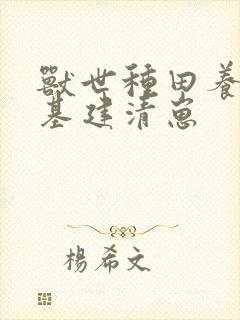 獸世種田養
基建清崽
楊希文